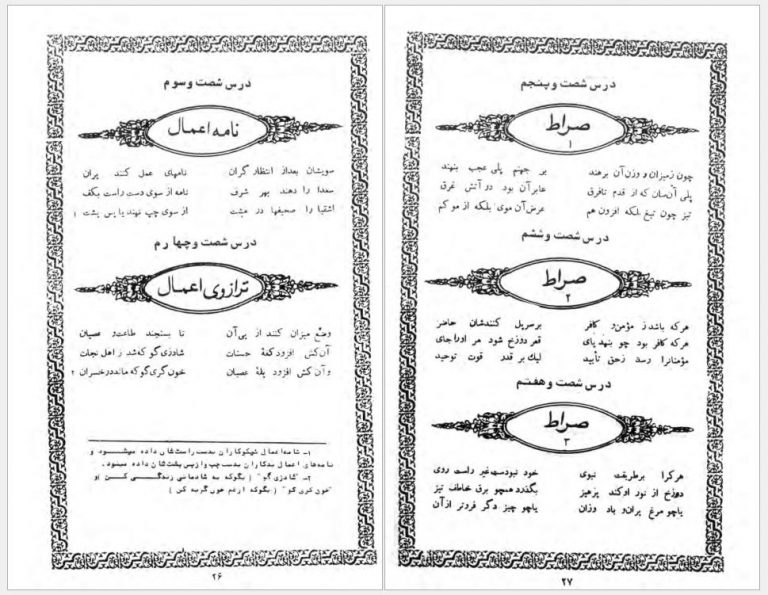 درس شصت و سوم
نامه اعمال
سویشان بعد از انتظار گران نامهای عمل کنند پران
سعدا را دهند بهر شرف نامه از سوی دست راست بکف
اشقیا را صحیفها در مشت از سوی چپ نهند یا پس پشت ۱
درس شصت و چهارم
ترازوی اعمال
وضع میزان کنند از پی آن تا بسنجند طاعت و عصیان
آن کش افزود کفهٔ حسنات شادزی گو که شد ز اهل نجات
و آن کش افزود پلهٔ عصیان خون گری گو که ماند در خسران ۲
۱ـ نامه اعمال نیکوکاران بدست راستشان داده میشود و
نامه‌های اعمال بدکاران بدست چپ و از پس پشتشان داده میشود.
۲ـ "شادزی گو" ( بگو که به شادمانی زندگی کن ) و
"خون گری گو" ( بگو که از غم خون گریه کن )
۲۶
درس شصت و پنجم
صراط
۱
چون ز میزان و وزن آن برهند بر جهنم پلی عجب بنهند
پلی آن‌سان که از قدم تا فرق عابر آن بود در آتش غرق
تیز چون تیغ بلکه افزون هم عرض آن موی بلکه از مو کم
درس شصت و ششم
صراط
۲
هر که باشد ز مؤمن و کافر بر سر پل کنندشان حاضر
هر که کافر بود چو بنهد پای قعر دوزخ شود مر او را جای
مؤمنانرا رسد ز حق تأیید لیک بر قدر قوت توحید
درس شصت و هفتم
صراط
۳
هر کرا بر طریقت نبوی خود نبودست غیر راست روی
دوزخ از نور او کند پرهیز بگذرد همچو برق خاطف تیز
یا چو مرغ پران و باد وزان یا چو چیز دگر فروتر از آن
۲۷